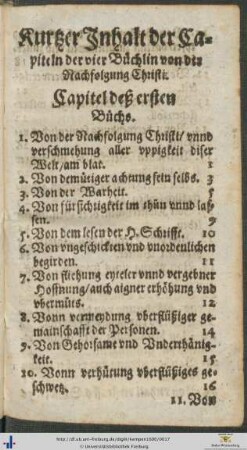 Kurtzer Inhalt der Ca-
piteln der vier Büchlin von der
Nachfolgung Christi.
Capitel deß ersten
Buchs.
1. Von der Nachfolgung Christi/ vnnd
verschmehung aller vppigkeit diser
Welt/am blat. 1
2. Von demütiger achtung sein selbs. 3
3. Von der Warheit. 5
4. Von fürsichtigkeit im thůn vnnd las-
sen. 9
5. Von dem lesen der H. Schrifft. 10
6. Von vngeschickten vnd vnordenlichen
begirden. 11
7. Von fliehung eyteler vnnd vergebner
Hoffnung/auch aigner erhöhung vnd
vbermůts. 12
8. Vonn vermeydung vberflüßiger ge-
mainschafft der Personen. 14
9. Von Gehorsame vnd Vnderthänig-
keit. 15
10. Vonn verhütung vberflüßiges ge-
schwetz. 16
11. Von
http://dl.ub.uni-freiburg.de/diglit/kempen1590/0017
© Universitätsbibliothek Freiburg